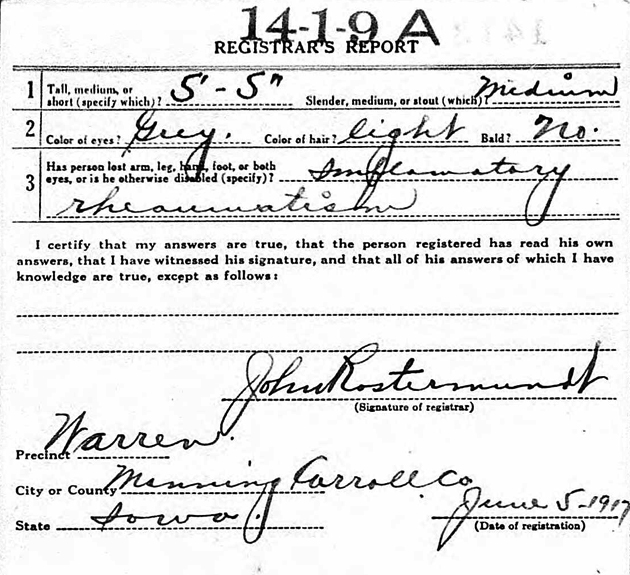 14-1-9 A
REGISTRAR'S REPORT
1 Tall, medium, or short (specify which)? 5' - 5" Slender, medium, or stout (which)? Medium
2 Color of eyes? Grey. Color of hair? light Bald? No.
3 Has person lost arm, leg, hand, foot, or both eyes, or is he otherwise disabled (specify)? Imflamatory
rheaumatism
I certify that my answers are true, that the person registered has read his own
answers, that I have witnessed his signature, and that all of his answers of which I have
knowledge are true, except as follows:
John Rostermundt
(Signature of registrar)
Precinct Warren.
City or County Manning Carroll Co
State Iowa.
June 5-1917
(Date of registration)